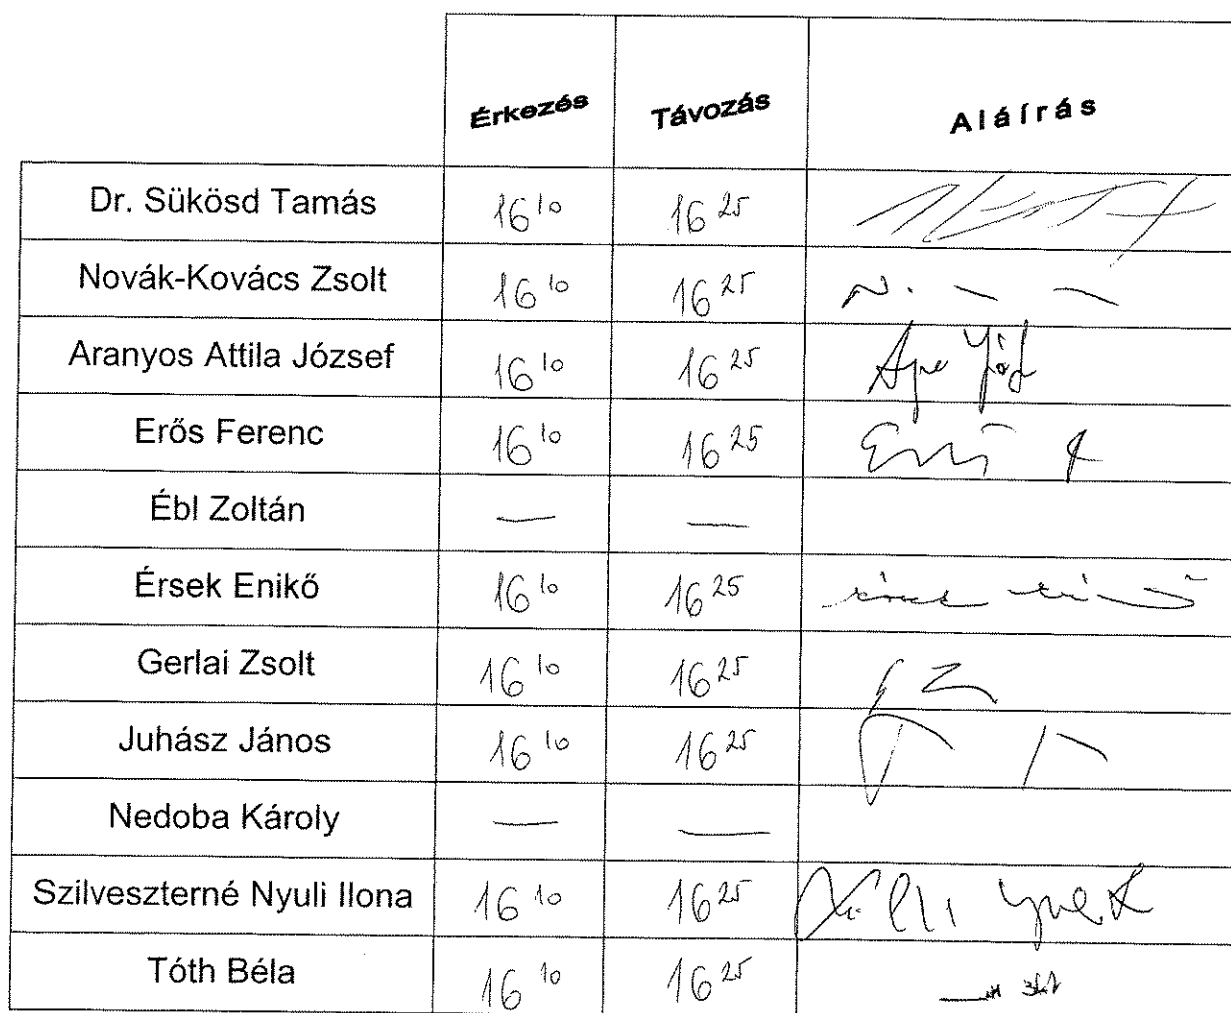 Érkezés Távozás Aláírás
Dr. Sükösd Tamás 16 10 16 25
Novák-Kovács Zsolt 16 10 16 25
Aranyos Attila József 16 10 16 25
Erős Ferenc 16 10 16 25
Ébl Zoltán — —
Érsek Enikő 16 10 16 25
Gerlai Zsolt 16 10 16 25
Juhász János 16 10 16 25
Nedoba Károly — —
Szilveszterné Nyuli Ilona 16 10 16 25
Tóth Béla 16 10 16 25